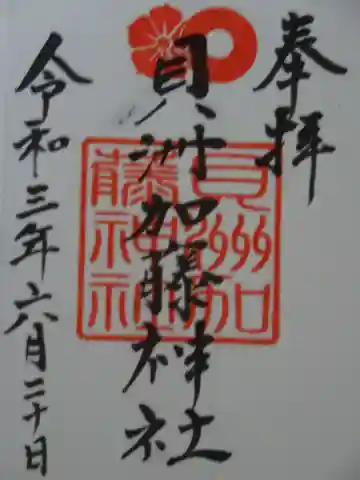 奉拝
貝洲加藤神社
令和三年六月二十日
貝州加
藤神社